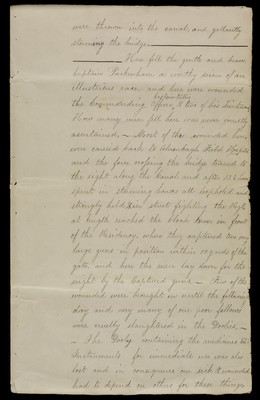 were thrown into the canal, and gallantly
storming the bridge.
Here fell the youth and hero
Captain Pakenham a worthy scion of an
illustrious race, and here were wounded
the Commanding Officer, & two of his Lieutenants
How many men fell here was never exactly
ascertained, — Most of the wounded however
were carried back to Alumbagh Field Hospital
and the force crossing the bridge turned to
the right along the Canal and after 12 hours
spent in storming house all loopholed and
strongly held, & in street fighting the Regt
at length reached the clock tower in front
of the Residency, where they captured two very
large guns in position within 50 yards of the
gate, and here the men lay down for the
night by the Captured guns — Few of the
wounded were brought in until the following
day and very many of our poor fellows
were cruelly slaughtered in the Doolies, —
— The Dooly containing the medicines &
Instruments for immediate use was also
lost and in consequence our sick & wounded
had to depend on others for these things